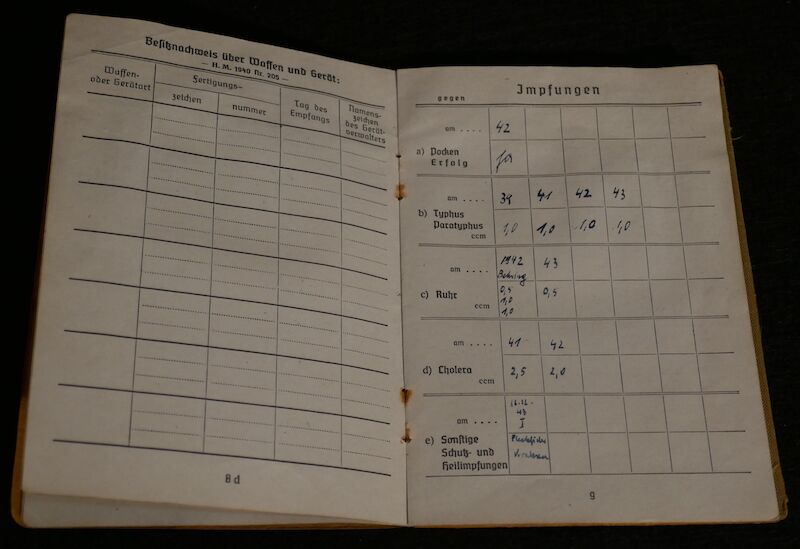 Besitznachweis über Waffen und Gerät:
— H. M. 1940 Nr. 205 —
Waffen-
oder Gerätart
Fertigungs-
zeichen
nummer
Tag des
Empfangs
Namens-
zeichen
des Gerät-
verwalters
8d
gegen
Impfungen
am .... 42
a) Pocken
Erfolg ja
am .... 39 41 42 43
b) Typhus
Paratyphus
ccm 1,0 1,0 1,0 1,0
am .... 1942 43
Behring
c) Ruhr
ccm
0,5 0,5
1,0
1,0
am .... 41 42
d) Cholera
ccm 2,5 2,0
am ....
43
I
e) Sonstige
Schutz- und
Heilimpfungen
9